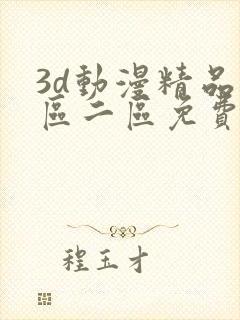 3d動漫精品
區二區免費
程玉才